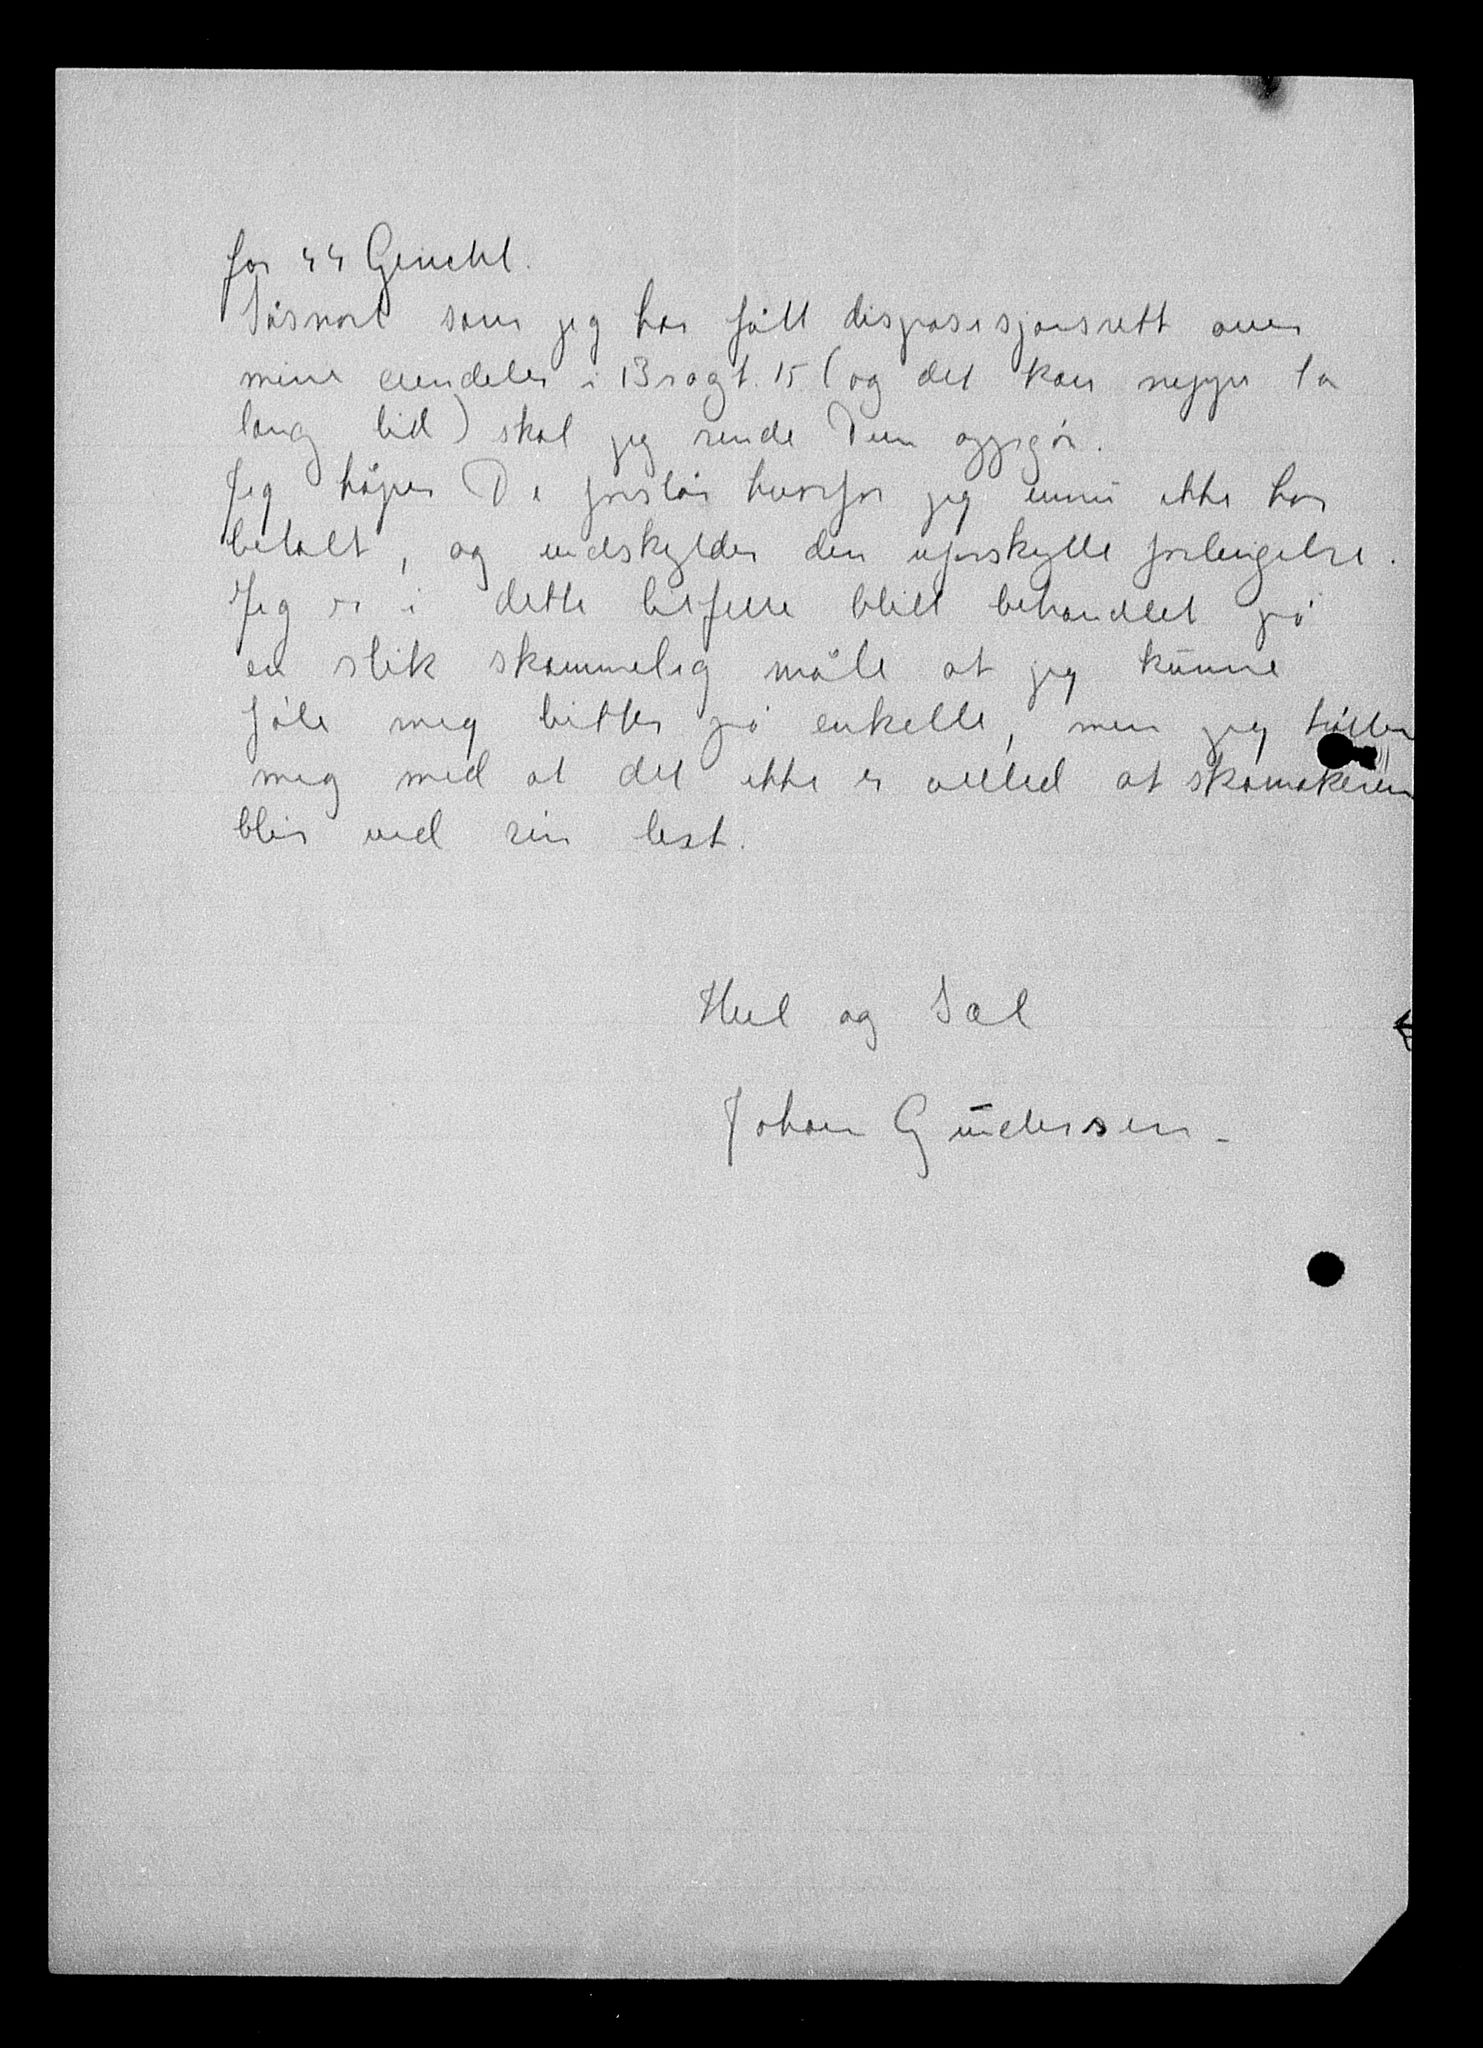 for SS Gericht.
Såsnart som jeg har fått disposisjonsrett over
mine eiendeler i Bragt. 15 (og det kan neppe ta
lang tid) skal jeg sende Dem oppgjør.
Jeg håper De forstår hvorfor jeg ennu ikke har
betalt, og undskylder den uforskylte forlengelse.
Jeg er i dette tilfelle blitt behandlet på
en slik skammelig måte at jeg kunne
føle meg bitter på enkelte, men jeg trøster
meg med at det ikke er alltid at skomakeren
blir ved sin lest.
Heil og Sæl
Johan Gundersen.